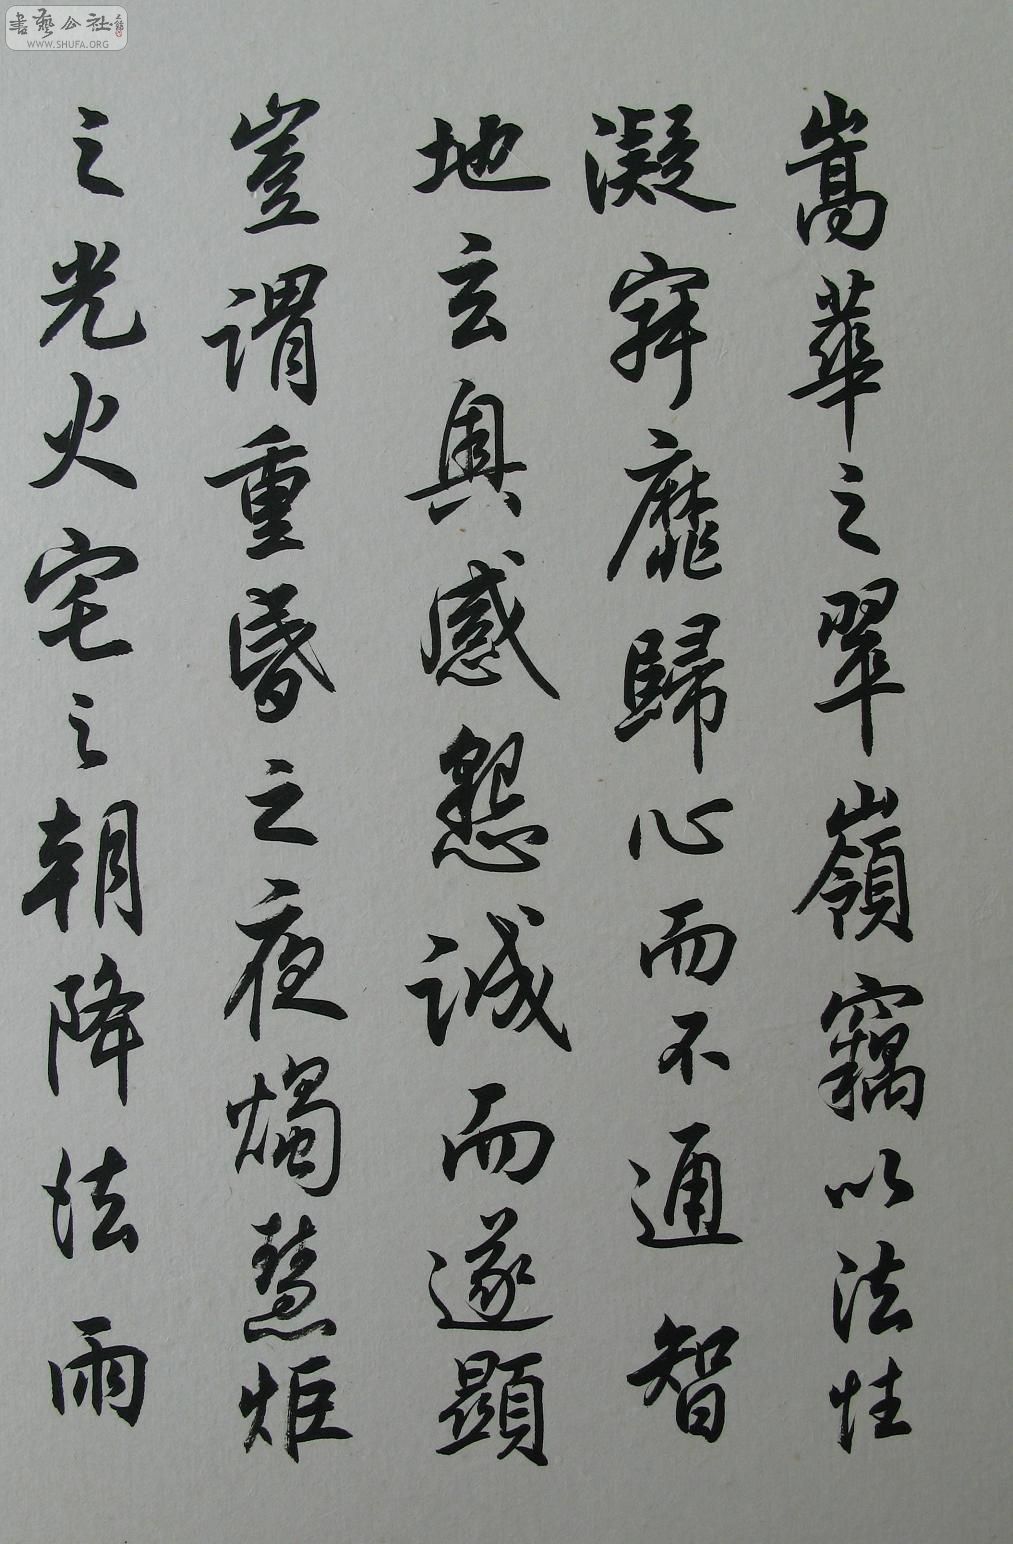 嵩華之翠嶺竊以法性
凝寂靡歸心而不通智
地玄奧感懇誠而遂顯
豈謂重昏之夜燭慧炬
之光火宅之朝降法雨
書藝公社
WWW.SHUFA.ORG